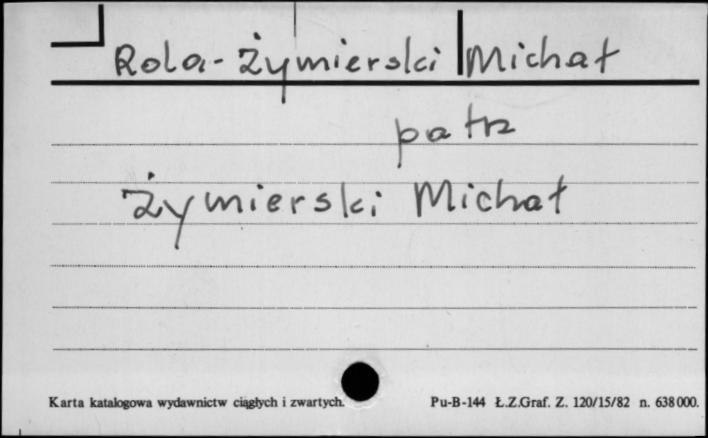 Rola-Żymierski Michał
patrz
Żymierski Michał
Karta katalogowa wydawnictw ciągłych i zwartych.
Pu-B-144 Ł.Z.Graf. Z. 120/15/82 n. 638000.